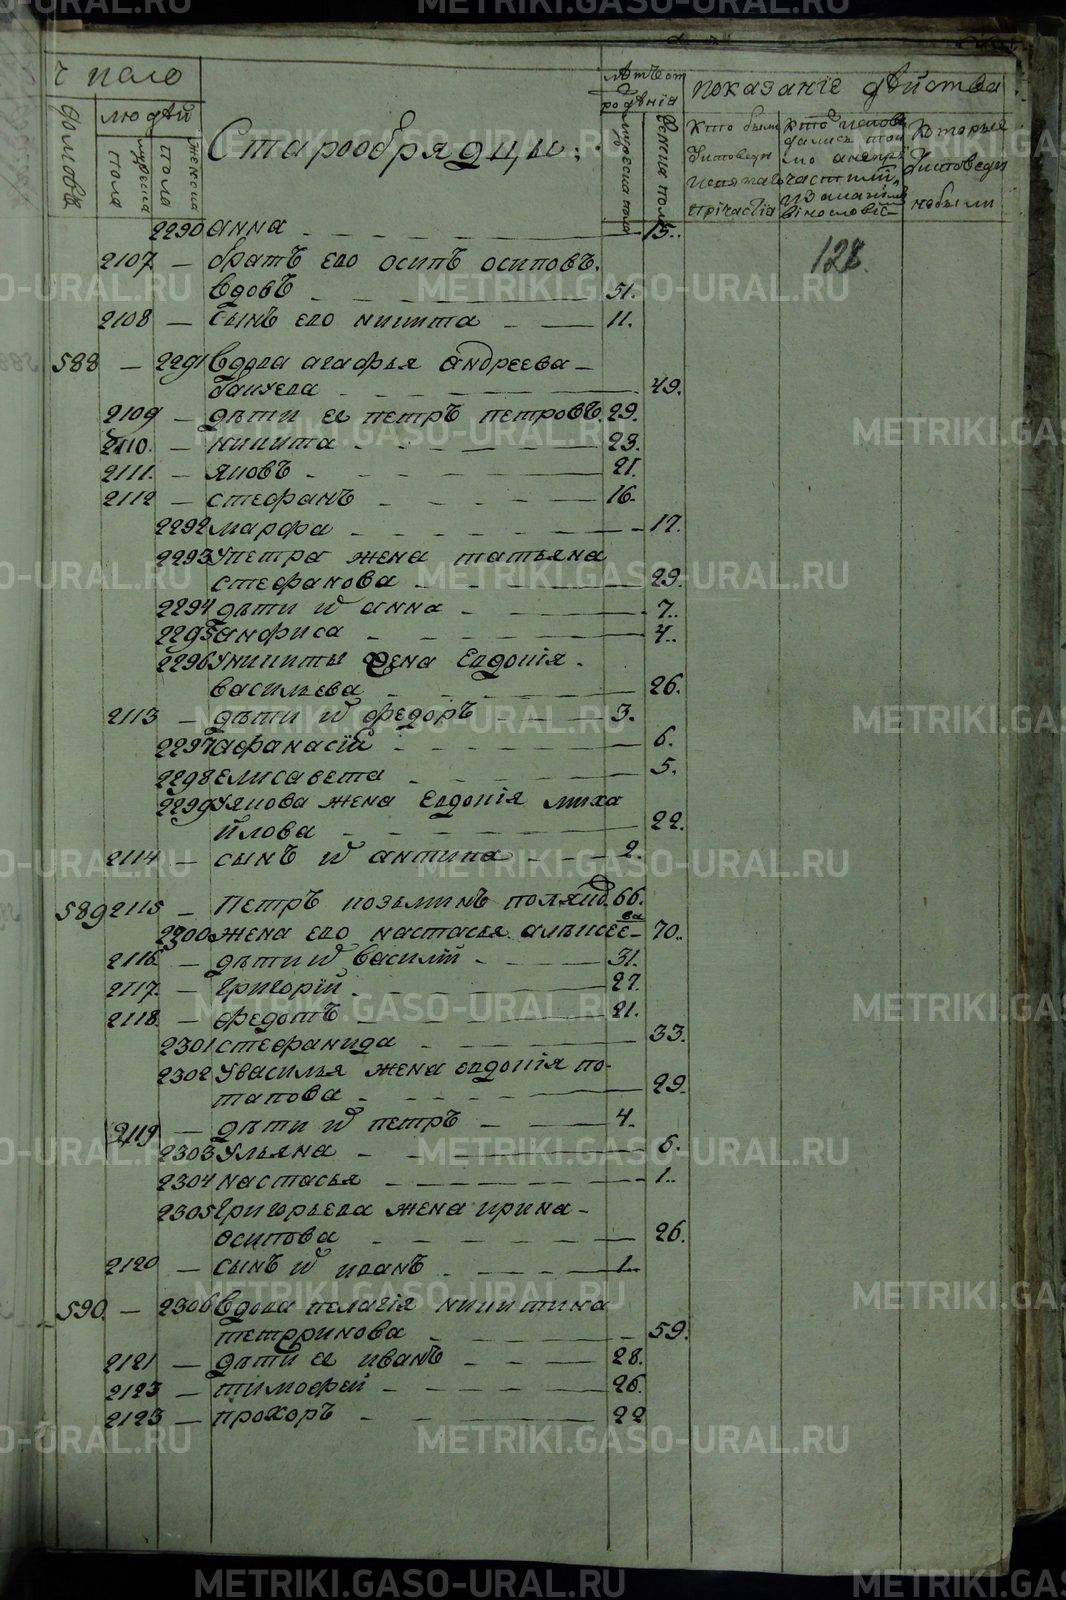 число
людей
домовъ
мужеска пола
женска пола
Старообрядцы:
лѣтъ от рождѣнія
мужеска пола
женска пола
показаніе дѣйства
кто были
у исповеди
и святаго
причастія
которые
у исповеди
небыли
128.
2290 анна 15.
2107. братъ его осипъ осиповъ.
вдовъ 51.
2108 сынъ его никита 11.
588 2291 вдова агафья андреева
49.
2109 дѣти ея петръ петровъ. 29.
2110. никита 23.
2111. яковъ 21.
2112 стефанъ 16.
2292 марфа 17.
2293 упетра жена татьяна
стефанова 29.
2294 дѣти и анна 7.
2295 анфиса 4.
2296 уникиты жена евдокія
васильева 26.
2113 дѣти и федоръ 3.
2297 афанасій 6.
2298 елисавета 5.
2299 уякова жена евдокія миха
йлова 22.
2114 сынъ и антипа 2.
589 2115 Петръ козьминъ поляк. 66.
2300 жена его настасья алѣксеева 70.
2116 дѣти и василій 31.
2117. григорій 27.
2118. федотъ 21.
2301 стефанида 33.
2302 увасилья жена евдокія по-
тапова 29.
2119 дѣти и петръ 4.
2303 ульяна 6.
2304 настасья 1.
2305 григорьева жена ирина
осипова 26.
2120 сынъ и иванъ 1.
590. 2306 вдова пелагія никитина
59.
2121 дѣти ея иванъ 28.
2123 тимофей 26.
2123 прохоръ 22
METRIKI.GASO-URAL.RU